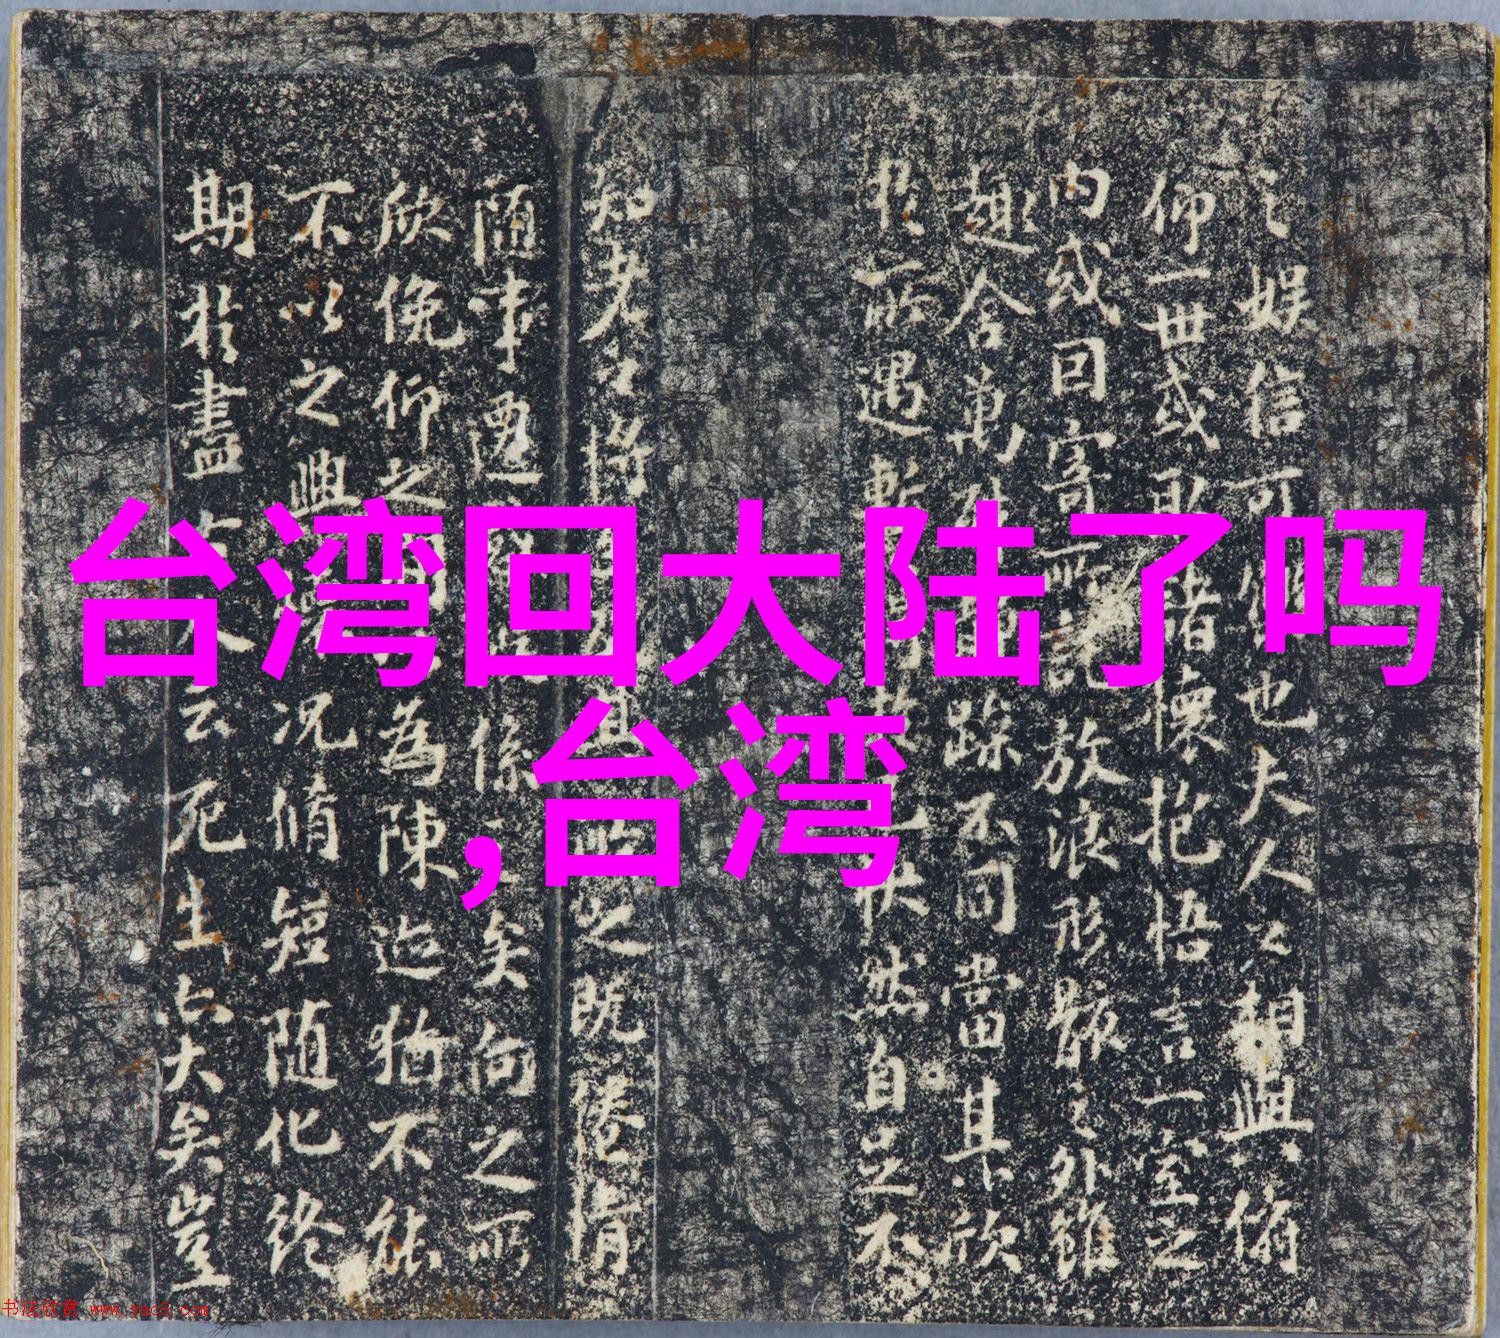 台湾回大陆了吗
,台湾
之娱信可乐也夫人之相與俯
仰一世或取諸懷抱悟言一室之
内或因寄所託放浪形骸之外雖
趣舍萬殊静躁不同當其欣
於所遇暫得於己快然自足不
知老之将至及其所之既惓情
随事遷感慨係之矣向之所
欣俛仰之間以為陳迹猶不能
不以之興懷况脩短随化终
期於盡古人云死生亦大矣豈
书法欣赏 www.yac8.com